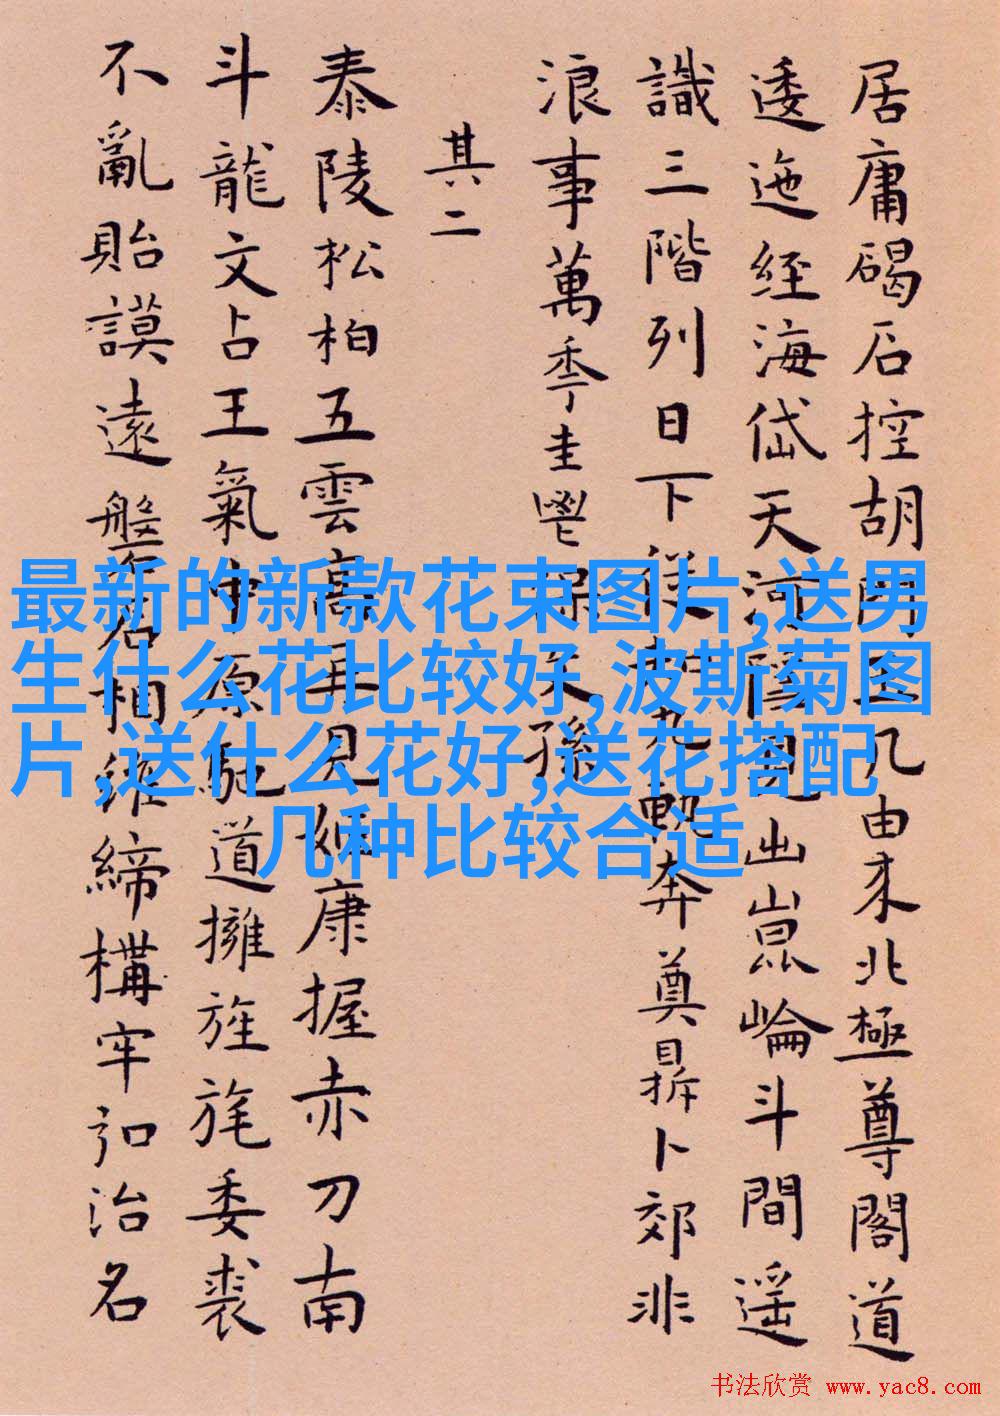 居庸碣石控胡門由来北極尊閣道
逶迤經海岱天河出崑崙斗間遥
識三階列日下從奔奠鼎卜郊非
浪事萬季圭鬯保文孫
其二
泰陵松柏五雲高再見姬康握赤刀南
斗龍文占王氣中原馳道擁旌旄委裘
不亂貽謨遠盤石相維締構牢治名
最新的新款花束图片,送男
生什么花比较好,波斯菊图
片,送什么花好,送花搭配
几种比较合适
书法欣赏 www.yac8.com